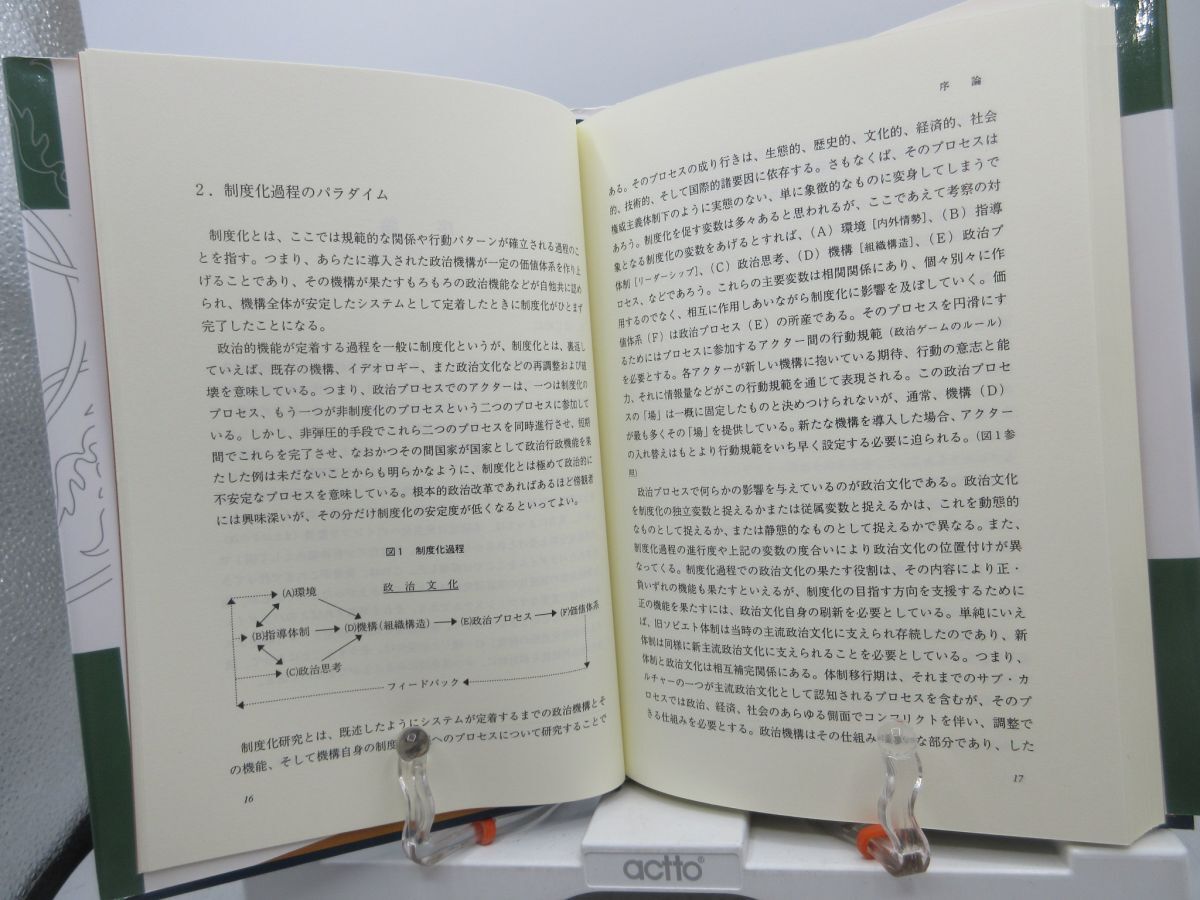 2．制度化過程のパラダイム
制度化とは、ここでは規範的な関係や行動パターンが確立される過程のこ
とを指す。つまり、あらたに導入された政治機構が一定の価値体系を作り上
げることであり、その機構が果たすもろもろの政治機能などが自他共に認め
られ、機構全体が安定したシステムとして定着したときに制度化がひとまず
完了したことになる。
政治的機能が定着する過程を一般に制度化というが、制度化とは、裏返し
ていえば、既存の機構、イデオロギー、また政治文化などの再調整および破
壊を意味している。つまり、政治プロセスでのアクターは、一つは制度化の
プロセス、もう一つが非制度化のプロセスという二つのプロセスに参加して
いる。しかし、非弾圧的手段でこれら二つのプロセスを同時進行させ、短期
間でこれらを完了させ、なおかつその間国家が国家として政治行政機能を果
たした例は未だないことからも明らかなように、制度化とは極めて政治的に
不安定なプロセスを意味している。根本的政治改革であればあるほど傍観者
には興味深いが、その分だけ制度化の安定度が低くなるといってよい。
図1　制度化過程
政治文化
(A)環境
(B)指導体制
(C)政治思考
(D)機構（組織構造）
(E)政治プロセス
(F)価値体系
フィードバック
制度化研究とは、既述したようにシステムが定着するまでの政治機構とそ
の機能、そして機構自身の制度 へのプロセスについて研究することで
16
序　論
ある。そのプロセスの成り行きは、生態的、歴史的、文化的、経済的、社会
的、技術的、そして国際的諸要因に依存する。さもなくば、そのプロセスは
権威主義体制下のように実態のない、単に象徴的なものに変身してしまうで
あろう。制度化を促す変数は多々あると思われるが、ここであえて考察の対
象となる制度化の変数をあげるとすれば、（A）環境［内外情勢］、（B）指導
体制［リーダーシップ］、（C）政治思考、（D）機構［組織構造］、（E）政治プ
ロセス、などであろう。これらの主要変数は相関関係にあり、個々別々に作
用するのでなく、相互に作用しあいながら制度化に影響を及ぼしていく。価
値体系（F）は政治プロセス（E）の所産である。そのプロセスを円滑にす
るためにはプロセスに参加するアクター間の行動規範（政治ゲームのルール）
を必要とする。各アクターが新しい機構に抱いている期待、行動の意志と能
力、それに情報量などがこの行動規範を通じて表現される。この政治プロセ
スの「場」は一概に固定したものと決めつけられないが、通常、機構（D）
が最も多くその「場」を提供している。新たな機構を導入した場合、アクター
の入れ替えはもとより行動規範をいち早く設定する必要に迫られる。（図1参
照）
政治プロセスで何らかの影響を与えているのが政治文化である。政治文化
を制度化の独立変数と捉えるかまたは従属変数と捉えるかは、これを動態的
なものとして捉えるか、または静態的なものとして捉えるかで異なる。また、
制度化過程の進行度や上記の変数の度合いにより政治文化の位置付けが異
なってくる。制度化過程での政治文化の果たす役割は、その内容により正・
負いずれの機能も果たすといえるが、制度化の目指す方向を支援するために
正の機能を果たすには、政治文化自身の刷新を必要としている。単純にいえ
ば、旧ソビエト体制は当時の主流政治文化に支えられ存続したのであり、新
体制は同様に新主流政治文化に支えられることを必要としている。つまり、
体制と政治文化は相互補完関係にある。体制移行期は、それまでのサブ・カ
ルチャーの一つが主流政治文化として認知されるプロセスを含むが、そのプ
ロセスでは政治、経済、社会のあらゆる側面でコンフリクトを伴い、調整で
きる仕組みを必要とする。政治機構はその仕組み な部分であり、した
17
actto®